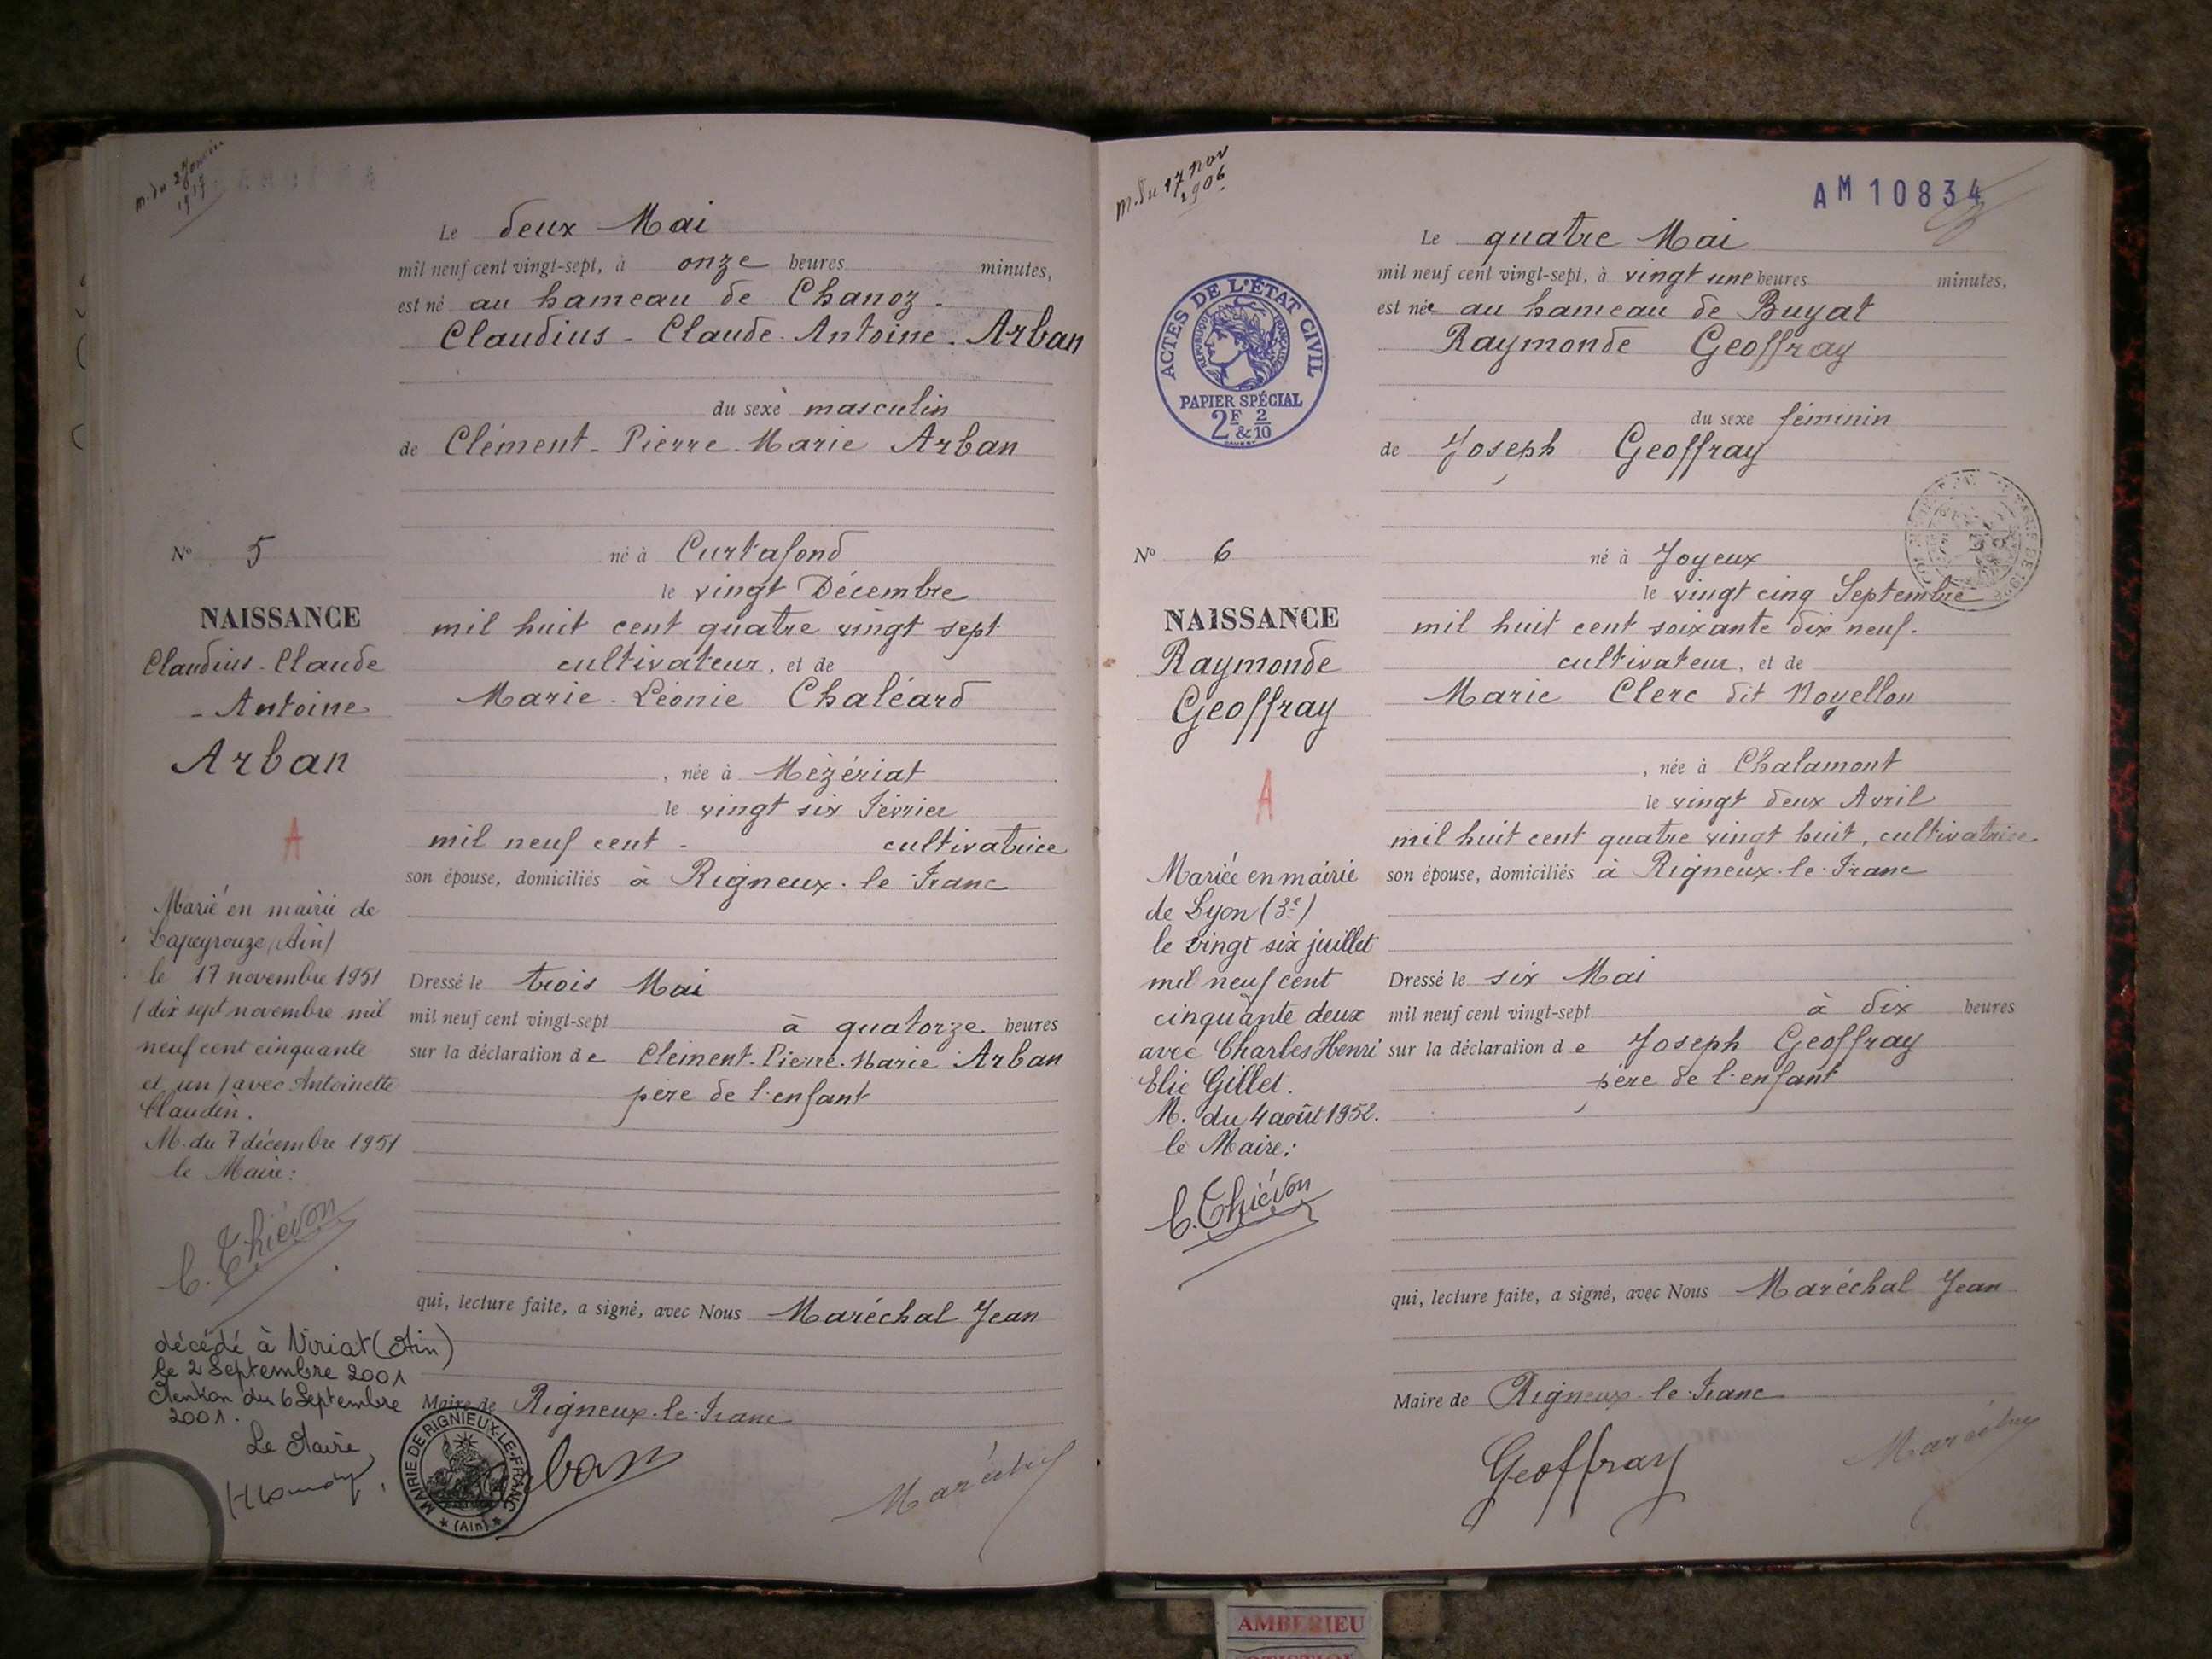 m. du 2 Janvier
1917
Le deux Mai
mil neuf cent vingt-sept, à onze heures minutes,
est né au hameau de Chanoz.
Claudius - Claude - Antoine. Arban
du sexe masculin
de Clément - Pierre - Marie Arban
né à Curtafond
le vingt Décembre
mil huit cent quatre vingt sept
cultivateur, et de
Marie - Léonie Chaléard
, née à Mézériat
le vingt six Février
mil neuf cent - cultivatrice
son épouse, domiciliés à Rigneux-le-Franc
Dressé le trois Mai
mil neuf cent vingt-sept à quatorze heures
sur la déclaration de Clément-Pierre-Marie Arban
père de l'enfant
qui, lecture faite, a signé, avec Nous Maréchal Jean
Maire de Rigneux-le-Franc
Arban
Maréchal
MAIRIE DE RIGNIEUX-LE-FRANC
(Ain)
N° 5
NAISSANCE
Claudius - Claude
- Antoine
Arban
A
Marié en mairie de
Lapeyrouze (Ain)
le 17 novembre 1951
(dix sept novembre mil
neuf cent cinquante
et un) avec Antoinette
Claudin.
M. du 7 décembre 1951
le Maire:
C. Thiévon
décédé à Viriat (Ain)
le 2 Septembre 2001
Mention du 6 Septembre
2001.
Le Maire
m. du 17 nov
1906
AM 10834
ACTES DE L'ÉTAT CIVIL
RÉPUBLIQUE FRANÇAISE
PAPIER SPÉCIAL
2F & 2/10
Le quatre Mai
mil neuf cent vingt-sept, à vingt une heures minutes,
est née au hameau de Buyat
Raymonde Geoffray
du sexe féminin
de Joseph Geoffray
né à Joyeux
le vingt cinq Septembre
mil huit cent soixante dix neuf.
cultivateur, et de
Marie Clerc dit Noyellon
, née à Chalamont
le vingt deux Avril
mil huit cent quatre vingt huit, cultivatrice
son épouse, domiciliés à Rigneux-le-Franc
Dressé le six Mai
mil neuf cent vingt-sept à dix heures
sur la déclaration de Joseph Geoffray
père de l'enfant
qui, lecture faite, a signé, avec Nous Maréchal Jean
Maire de Rigneux-le-Franc
Geoffray
Maréchal
N° 6
NAISSANCE
Raymonde
Geoffray
A
Mariée en mairie
de Lyon (3e)
le vingt six juillet
mil neuf cent
cinquante deux
avec Charles Henri
Elie Gillet.
M. du 4 août 1952.
le Maire:
C. Thiévon
AMBERIEU